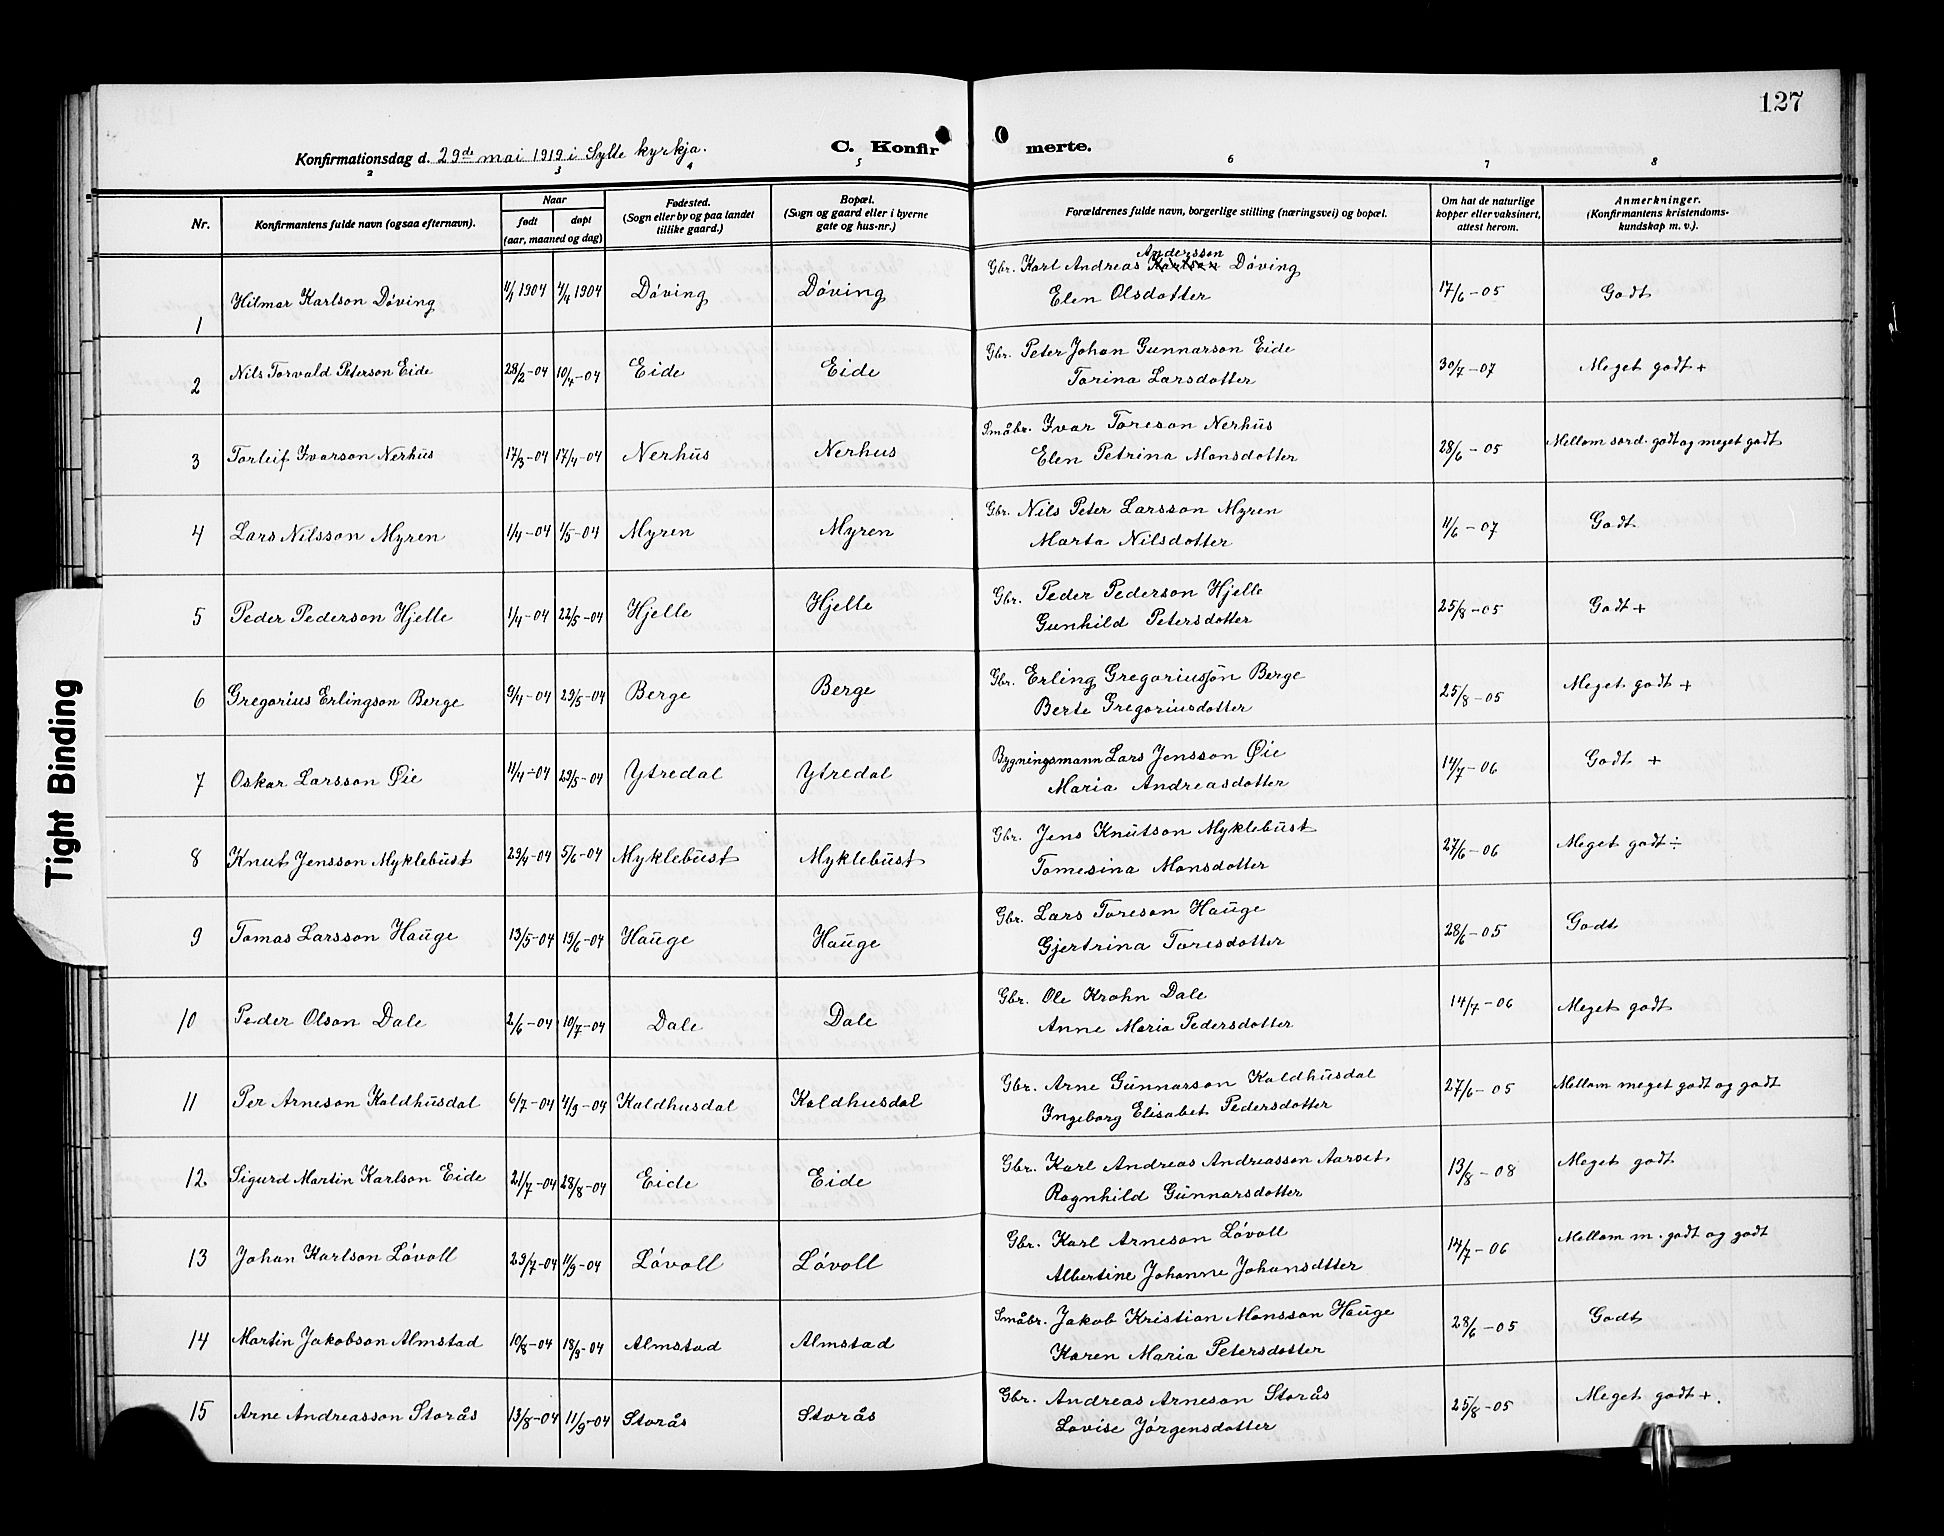 127
Konfirmationsdag d. 29de mai 1919 i Sylte kyrkja.
C. Konfirmerte.
2 3 4 5 6 7 8
Nr.
Konfirmantens fulde navn (ogsaa efternavn).
Naar
født døpt
(aar, maaned og dag)
Fødested.
(Sogn eller by og paa landet
tillike gaard.)
Bopæl.
(Sogn og gaard eller i byerne
gate og hus-nr.)
Forældrenes fulde navn, borgerlige stilling (næringsvei) og bopæl.
Om hat de naturlige
kopper eller vaksinert,
attest herom.
Anmerkninger.
(Konfirmantens kristendoms-
kundskap m. v.).
1 Hilmar Karlson Döving 11/1 1904 4/4 1904 Döving Döving Gbr. Karl Andreas Karlson Andersson Döving 17/6-05 Godt
Elen Olsdotter
2 Nils Torvald Peterson Eide 28/2-04 10/4-04 Eide Eide Gbr. Peter Johan Gunnarson Eide 30/7-07 Meget godt +
Torina Larsdotter
3 Torleif Ivarson Nerhus 17/3-04 17/4-04 Nerhus Nerhus Småbr. Ivar Toreson Nerhus 28/6-05 Mellom særd. godt og meget godt
Elen Petrina Monsdotter
4 Lars Nilsson Myren 1/4-04 1/5-04 Myren Myren Gbr. Nils Peter Larsson Myren 11/6-07 Godt
Marta Nilsdotter
5 Peder Pederson Hjelle 1/4-04 22/5-04 Hjelle Hjelle Gbr. Peder Pederson Hjelle 25/8-05 Godt +
Gunhild Petersdotter
6 Gregorius Erlingson Berge 9/4-04 29/5-04 Berge Berge Gbr. Erling Gregoriussön Berge 25/8-05 Meget godt +
Berte Gregoriusdotter
7 Oskar Larsson Øie 11/4-04 29/5-04 Ytredal Ytredal Bygningsmann Lars Jensson Øie 14/7-06 Godt +
Maria Andreasdotter
8 Knut Jensson Myklebust 29/4-04 5/6-04 Myklebust Myklebust Gbr. Jens Knutson Myklebust 27/6-06 Meget godt ÷
Tomesina Monsdotter
9 Tomas Larsson Hauge 13/5-04 19/6-04 Hauge Hauge Gbr. Lars Toreson Hauge 28/6-05 Godt
Gjertrina Toresdotter
10 Peder Olson Dale 2/6-04 10/7-04 Dale Dale Gbr. Ole Krohn Dale 14/7-06 Meget godt
Anne Maria Pedersdotter
11 Per Arneson Kaldhusdal 6/7-04 4/9-04 Kaldhusdal Kaldhusdal Gbr. Arne Gunnarson Kaldhusdal 27/6-05 Mellom meget godt og godt
Ingeborg Elisabet Pedersdotter
12 Sigurd Martin Karlson Eide 21/7-04 28/8-04 Eide Eide Gbr. Karl Andreas Andreasson Aarset 13/8-08 Meget godt
Ragnhild Gunnarsdotter
13 Johan Karlson Lövoll 29/7-04 11/9-04 Lövoll Lövoll Gbr. Karl Arneson Lövoll 14/7-06 Mellom m. godt og godt
Albertine Johanne Johansdtter
14 Martin Jakobson Almstad 10/8-04 18/9-04 Almstad Almstad Småbr. Jakob Kristian Monsson Hauge 28/6-05 Godt
Karen Maria Petersdotter
15 Arne Andreasson Storås 13/8-04 11/9-04 Storås Storås Gbr. Andreas Arneson Storås 25/8-05 Meget godt +.
Lovise Jörgensdotter
Tight Binding